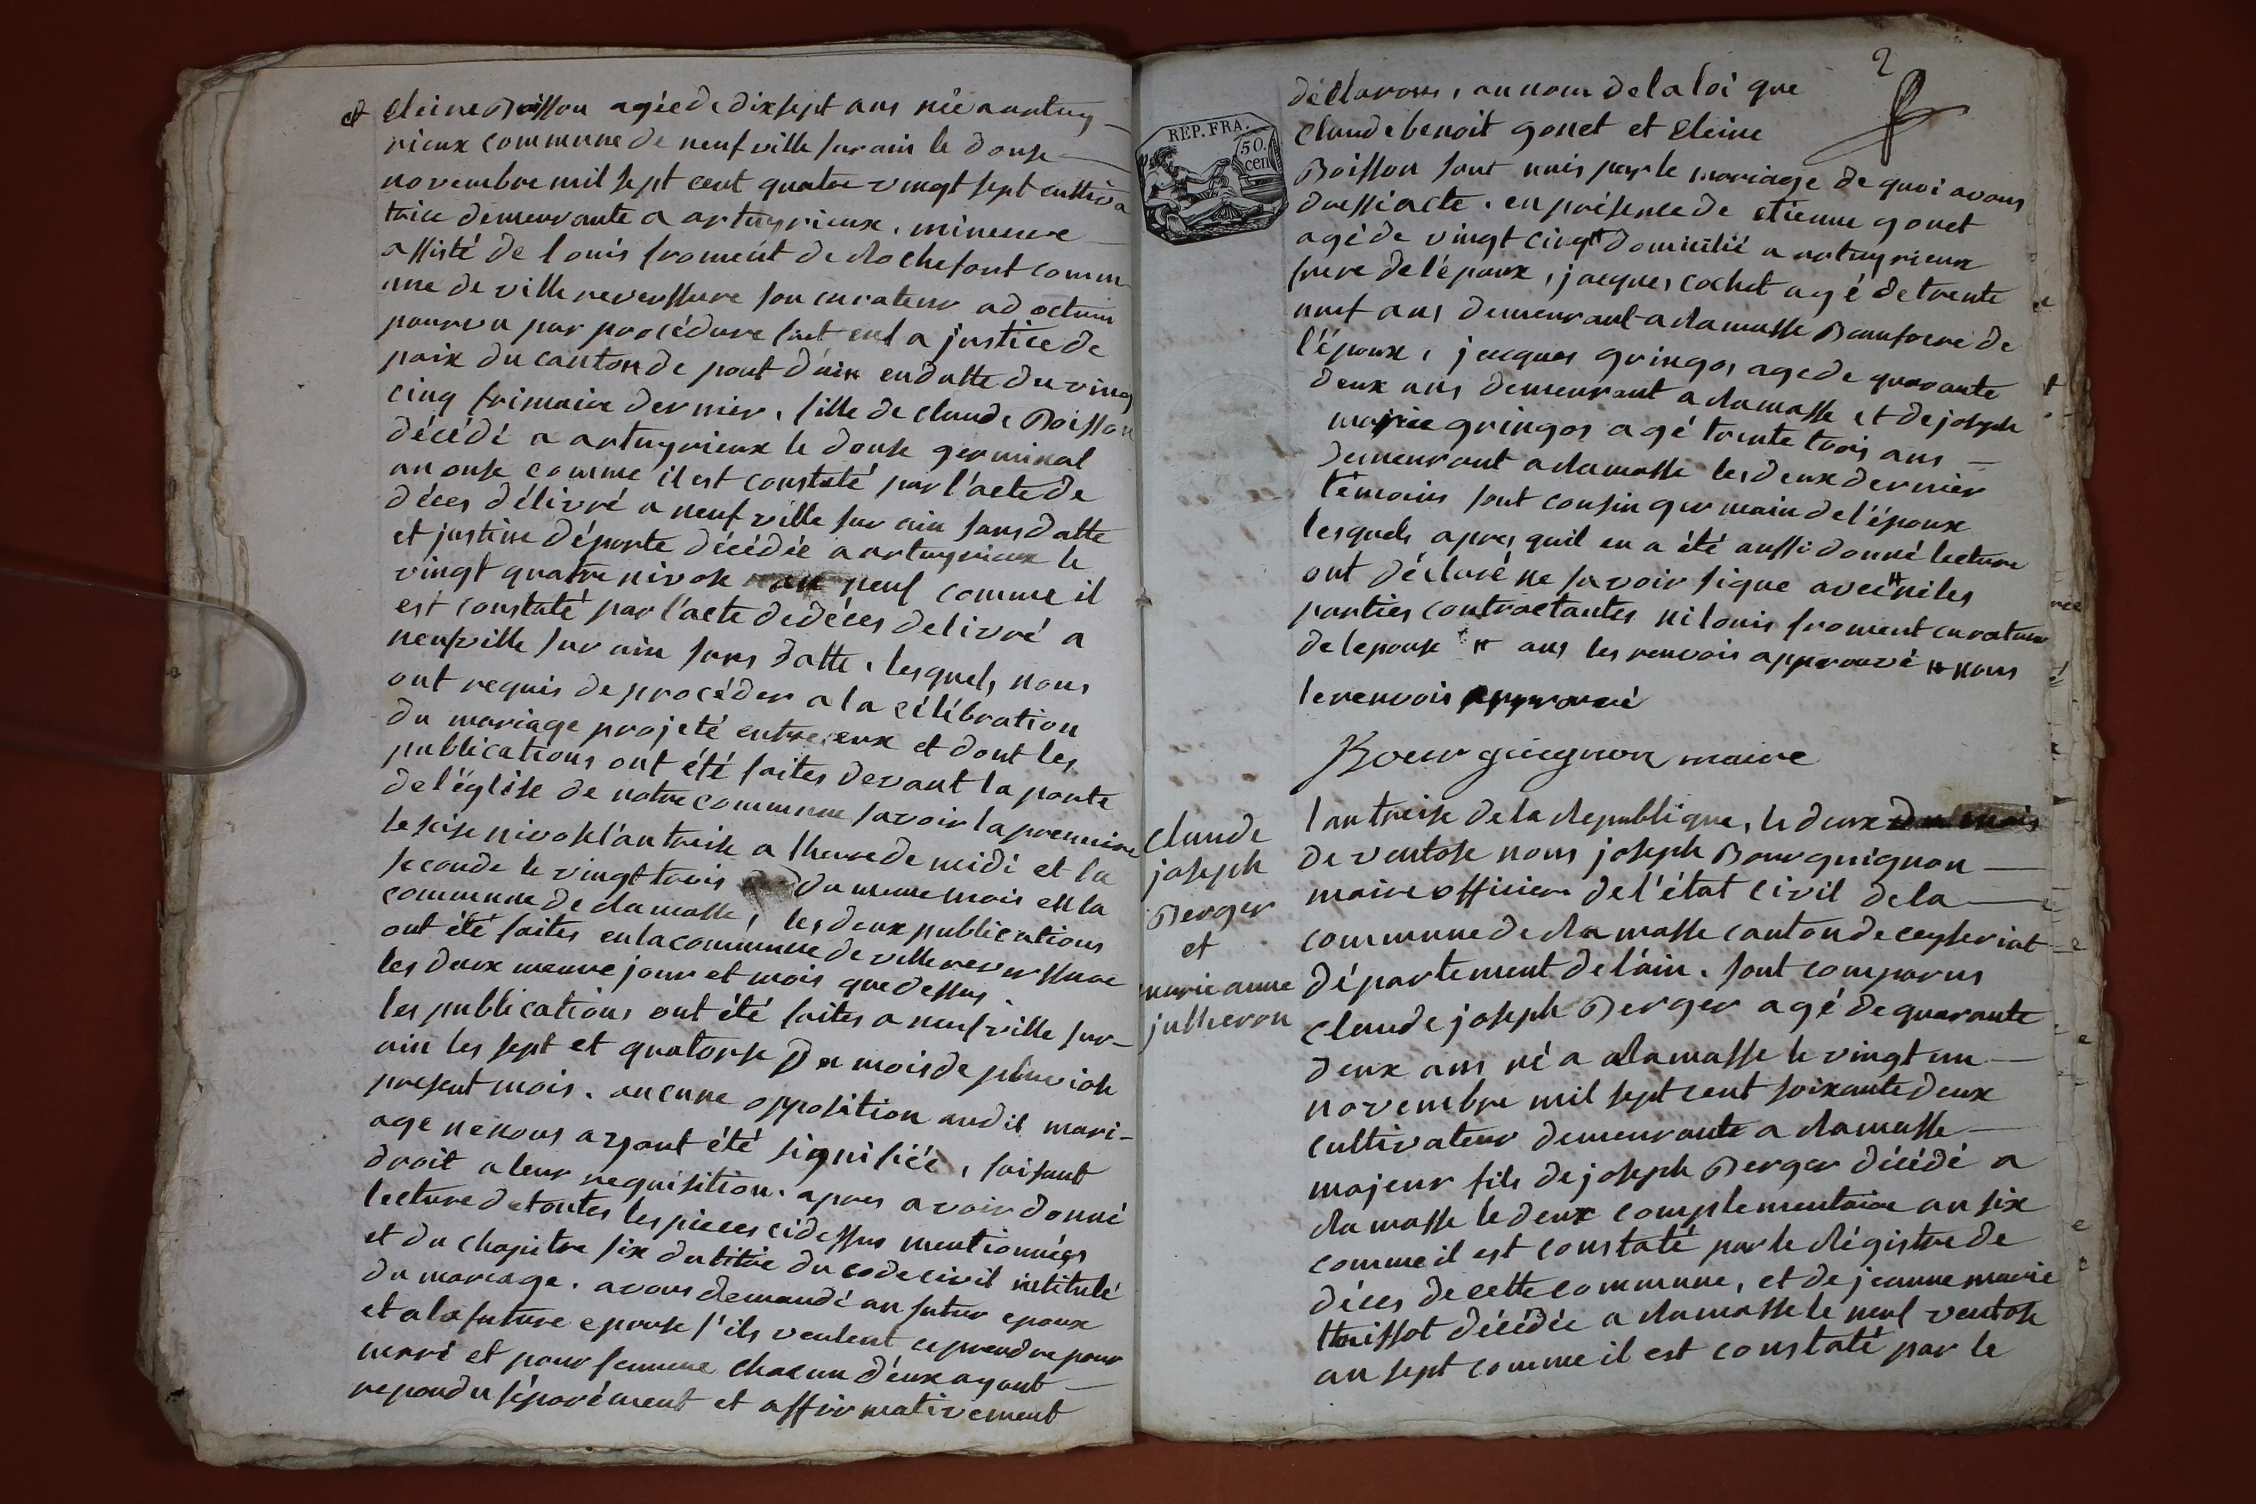 et Eleine Boisson agée de dix sept ans née a artuy-
rieux commune de neufville sur ain le douse
novembre mil sept cent quatre vingt sept cultiva
trice demeurante a artuyrieux, mineure
assisté de louis froment de Rochefort comm
une de ville reverssure son curateur ad actum
pourvu par procédure fait en la justice de
paix du canton de pont d'ain en datte du vingt
cinq frimaire dernier, fille de claude Boisson
décédé a artuyrieux le douse germinal
an onse comme il est constaté par l'acte de
déces délivré a neufville sur ain sans datte
et justine déporte décédée a artuyrieux le
vingt quatre nivose an neuf comme il
est constaté par l'acte de déces delivré a
neufville sur ain sans datte. lesquels nous
ont requis de procéder a la célébration
du mariage projeté entre eux et dont les
publications ont été faites devant la porte
de l'église de notre commune savoir la premiere
le seise nivose l'an treise a lheure de midi et la
seconde le vingt trois du meme mois en la
commune de Ramasse, les deux publications
ont été faites en la commune de ville reverssure
les deux meme jour et mois que dessus.
les publications ont été faites a neufville sur-
ain les sept et quatorse du mois de pluviose
present mois. aucune opposition audit mari-
age ne nous ayant été signifiée, faisant
droit a leur requisition. apres avoir donné
lecture de toutes les pieces cidessus mentionnées
et du chapitre six du titre du code civil intitulé
du mariage. avons demandé au futur epoux
et a la future epouse s'ils veulent ce prendre pour
marié et pour femme chacun d'eux ayant
repondu séparément et affirmativement
2
déclarons, au nom de la loi que
Claude benoit gonet et Eleine
Boisson sont unis par le mariage de quoi avons
dressé acte. en présence de etienne gonet
agé de vingt cinq # domicilié a artuyrieux
frere de l'époux, jacques cochet agé de trente
neuf ans demeurant a Ramasse Beaufrere de
l'époux, jacques gringos, age de quarante
deux ans demeurant a Ramasse et de joseph
marie gringos agé trente trois ans
demeurant a Ramasse les deux dernier
témoins sont cousin germain de l'époux
lesquels apres quil en a été aussi donné lecture
ont déclaré ne savoir signe avec # ni les
parties contractantes ni louis froment curateur
de lepouse # ans les renvois approuvé # nous
le renvois approuvé
Bourguignon maire
REP. FRA.
50.
cen
Claude
joseph
Berger
et
marie anne
jultheron
l'an treise de la Republique, le deux du mois
de ventose nous joseph Bourguignon
maire officier de l'état civil de la
commune de Ramasse canton de ceyseriat
département de l'ain. sont comparus
claude joseph Berger agé de quarante
deux ans né a Ramasse le vingt un
novembre mil sept cent soixante deux
cultivateur demeurante a Ramasse
majeur fils de joseph Berger décédé a
Ramasse le deux complementaire an six
comme il est constaté par le Régistre de
déces de cette commune, et de jeanne marie
décédée a Ramasse le neuf ventose
an sept comme il est constaté par le